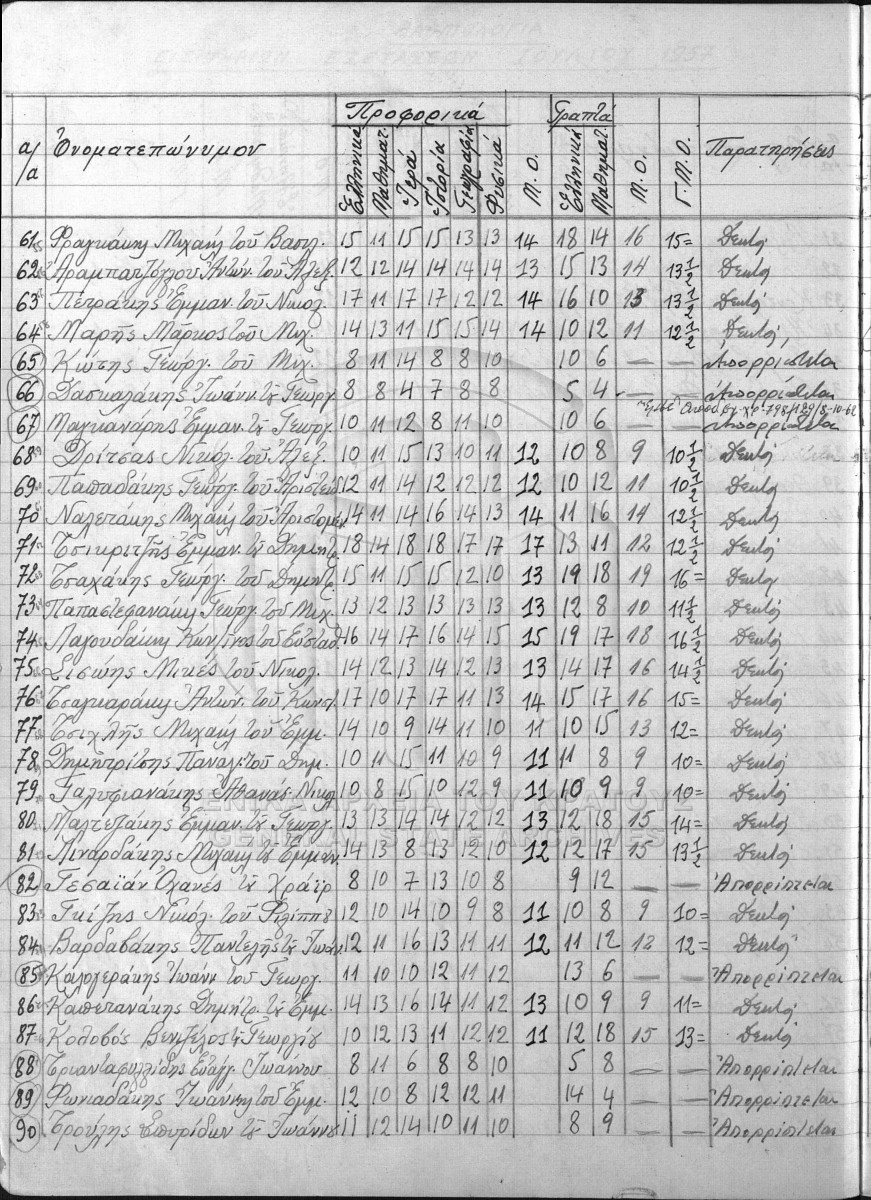 ΕΙΣΙΤΗΡΙΩΝ ΕΞΕΤΑΣΕΩΝ ΙΟΥΛΙΟΥ 1957
Προφορικά Γραπτά
α/α Ὀνοματεπώνυμον Ἑλληνικά Μαθηματ. Ἱερά Ἱστορία Γεωγραφία Φυσικά Μ.Ο. Ἑλληνικά Μαθηματ. Μ.Ο. Γ.Μ.Ο. Παρατηρήσεις
61 Φραγκάκης Μιχαήλ τοῦ Βασιλ. 15 11 15 15 13 13 14 18 14 16 15= Δεκτός
62 Ἀραμπατζόγλου Ἀντών. τοῦ Ἀλεξ. 12 12 14 14 14 14 13 15 13 14 13½ Δεκτός
63 Πετράκης Ἐμμαν. τοῦ Νικολ. 17 11 17 17 12 12 14 16 10 13 13½ Δεκτός
64 Μαρῆς Μάρκος τοῦ Μιχ. 14 13 11 15 15 14 14 10 12 11 12½ Δεκτός
65 Κώτσης Γεώργ. τοῦ Μιχ. 8 11 14 8 8 10 10 6 — — Ἀπορρίπτεται
66 Δασκαλάκης Ἰωάνν. τ. Γεωργ. 8 8 4 7 8 8 5 4 — — Ἀπορρίπτεται
67 Μαγκανάρης Ἐμμαν. τ. Γεωργ. 10 11 12 8 11 10 10 6 — — Ἀπορρίπτεται
68 Δρίτσας Νικόλ. τοῦ Ἀλεξ. 10 11 15 13 10 11 12 10 8 9 10½ Δεκτός
69 Παπαδάκης Γεώργ. τοῦ Ἀριστείδ. 12 11 14 12 12 12 12 10 12 11 10½ Δεκτός
70 Ναλετάκης Μιχαήλ τοῦ Ἀριστομ. 14 11 14 16 14 13 14 11 16 14 12½ Δεκτός
71 Τσικριτζῆς Ἐμμαν. τ. Δημητ. 18 14 18 18 17 17 17 13 11 12 12½ Δεκτός
72 Τσαχάκης Γεώργ. τοῦ Δημητρ. 15 11 15 15 12 10 13 19 18 19 16= Δεκτός
73 Παπαστεφανάκης Γεώργ. τοῦ Μιχ. 13 12 13 13 13 13 13 12 8 10 11½ Δεκτός
74 Λαγουδάκης Κων/τῖνος τοῦ Εὐσταθ. 16 14 17 16 14 15 15 19 17 18 16½ Δεκτός
75 Σισώης Μικές τοῦ Νικολ. 14 12 13 14 12 13 13 14 17 16 14½ Δεκτός
76 Τσαγκαράκης Ἀντων. τοῦ Κωνστ. 17 10 17 17 11 13 14 15 17 16 15= Δεκτός
77 Τσιχλῆς Μιχαήλ τοῦ Ἐμμ. 14 10 9 14 11 10 11 10 15 13 12= Δεκτός
78 Δημητρίτσης Παναγ. τοῦ Δημ. 10 11 15 11 10 9 11 11 8 9 10= Δεκτός
79 Γαλυφιανάκης Ἀθανάσ. Νικολ. 10 8 15 10 12 9 11 10 9 9 10= Δεκτός
80 Μαλτεζάκης Ἐμμαν. τ. Γεωργ. 13 13 14 14 12 12 13 12 18 15 14= Δεκτός
ΓΕΝΙΚΑ ΑΡΧΕΙΑ ΤΟΥ ΚΡΑΤΟΥΣ
GENERAL STATE ARCHIVES
81 Λιναρδάκης Μιχαήλ τ. Ἐμμαν. 14 13 8 13 12 10 12 12 17 15 13½ Δεκτός
82 Γεσαϊάν Ὀχανές τ. Χράϊρ 8 10 7 13 10 8 9 12 — — Ἀπορρίπτεται
83 Γκίζης Νικόλ. τοῦ Φιλίππου 12 10 14 10 9 8 11 10 8 9 10= Δεκτός
84 Βαρδαβάκης Παντελῆς τ. Ἰωάν. 12 11 16 13 11 11 12 11 12 12 12= Δεκτός
85 Καλογεράκης Ἰωάνν. τοῦ Γεωργ. 11 10 10 12 11 12 13 6 — — Ἀπορρίπτεται
86 Καπετανάκης Δημήτρ. τ. Ἐμμ. 14 13 16 14 11 12 13 10 9 9 11= Δεκτός
87 Κολοβός Βενιζέλος τ. Γεωργίου 10 12 13 11 12 12 11 12 18 15 13= Δεκτός
88 Τριανταφυλλίδης Εὐάγγ. Ἰωάννου 8 11 6 8 8 10 5 8 — — Ἀπορρίπτεται
89 Φωκιαδάκης Ἰωάννης τοῦ Ἐμμ. 12 10 8 12 12 11 14 4 — — Ἀπορρίπτεται
90 Τρούλης Σπυρίδων τ. Ἰωάννου 11 12 14 10 11 10 8 9 — — Ἀπορρίπτεται